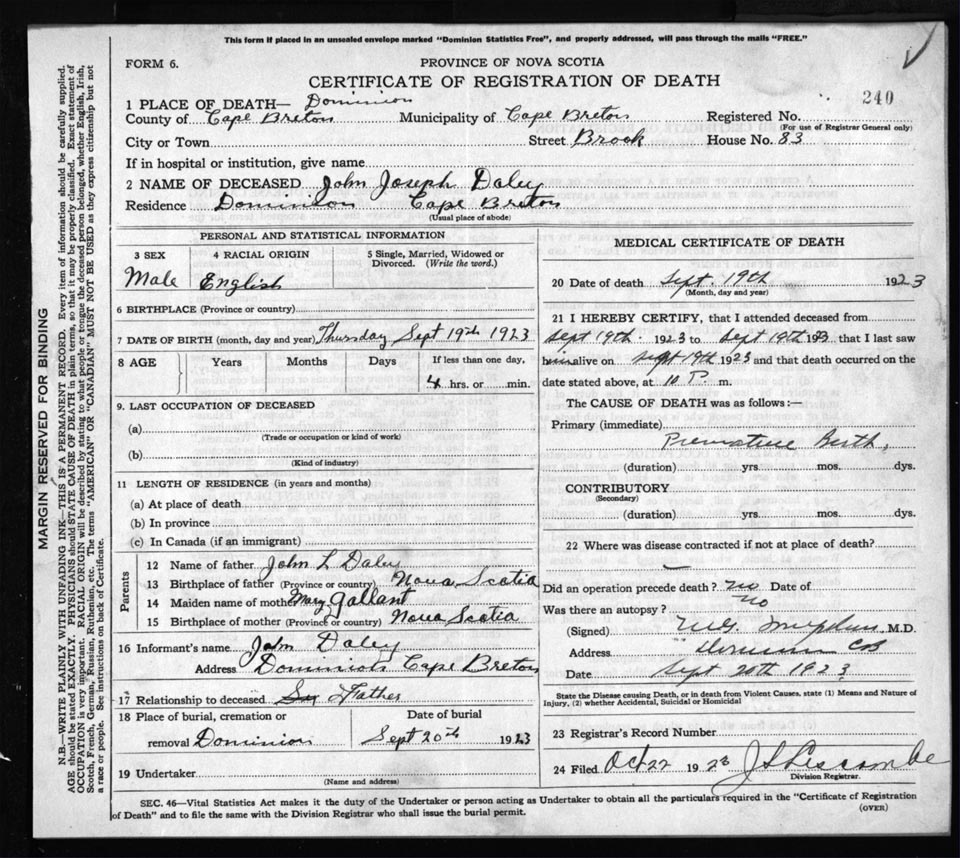 This form if placed in an unsealed envelope marked "Dominion Statistics Free", and properly addressed, will pass through the mails "FREE."
FORM 6.
PROVINCE OF NOVA SCOTIA
CERTIFICATE OF REGISTRATION OF DEATH
240
1 PLACE OF DEATH— Dominion
County of Cape Breton Municipality of Cape Breton Registered No.
(For use of Registrar General only)
City or Town Street Brook House No. 83
If in hospital or institution, give name
2 NAME OF DECEASED John Joseph Daley
Residence Dominion Cape Breton
(Usual place of abode)
PERSONAL AND STATISTICAL INFORMATION
3 SEX 4 RACIAL ORIGIN 5 Single, Married, Widowed or Divorced. (Write the word.)
Male English
6 BIRTHPLACE (Province or country)
7 DATE OF BIRTH (month, day and year) Thursday Sept 19th 1923
8 AGE Years Months Days If less than one day,
4 hrs. or min.
9. LAST OCCUPATION OF DECEASED
(a)
(Trade or occupation or kind of work)
(b)
(Kind of industry)
11 LENGTH OF RESIDENCE (in years and months)
(a) At place of death
(b) In province
(c) In Canada (if an immigrant)
Parents
12 Name of father John L Daley
13 Birthplace of father (Province or country) Nova Scotia
14 Maiden name of mother Mary Gallant
15 Birthplace of mother (Province or country) Nova Scotia
16 Informant's name John Daley
Address Dominion Cape Breton
17 Relationship to deceased Father
18 Place of burial, cremation or Date of burial
removal Dominion Sept 20th 1923
19 Undertaker
(Name and address)
MEDICAL CERTIFICATE OF DEATH
20 Date of death Sept. 19th 1923
(Month, day and year)
21 I HEREBY CERTIFY, that I attended deceased from
Sept 19th 1923 to Sept 19th 1923 that I last saw
him alive on Sept 19th 1923 and that death occurred on the
date stated above, at 10 P. m.
The CAUSE OF DEATH was as follows:—
Primary (immediate)
Premature Birth,
(duration) yrs. mos. dys.
CONTRIBUTORY
(Secondary)
(duration) yrs. mos. dys.
22 Where was disease contracted if not at place of death?
—
Did an operation precede death? no Date of
Was there an autopsy? no
(Signed) M.D.
Address Dominion CB
Date Sept 20th 1923
State the Disease causing Death, or in death from Violent Causes, state (1) Means and Nature of
Injury, (2) whether Accidental, Suicidal or Homicidal
23 Registrar's Record Number
24 Filed Oct 22 1923
Division Registrar.
SEC. 46—Vital Statistics Act makes it the duty of the Undertaker or person acting as Undertaker to obtain all the particulars required in the "Certificate of Registration
of Death" and to file the same with the Division Registrar who shall issue the burial permit.
(OVER)
MARGIN RESERVED FOR BINDING
N.B.—WRITE PLAINLY WITH UNFADING INK—THIS IS A PERMANENT RECORD. Every item of information should be carefully supplied.
AGE should be stated EXACTLY. PHYSICIANS should STATE CAUSE OF DEATH in plain terms, so that it may be properly classified. Exact statement of
OCCUPATION is very important. RACIAL ORIGIN will be described by stating to what people or tongue the deceased person belonged, whether English, Irish,
Scotch, French, German, Russian, Ruthenian, etc. The terms "AMERICAN" OR "CANADIAN" MUST NOT BE USED as they express citizenship but not
a race or people. See instructions on back of Certificate.